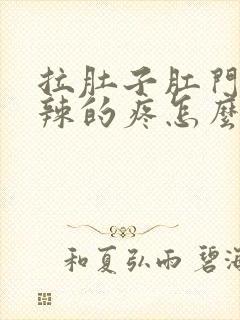 拉肚子肛門
辣的疼怎麼
和夏弘雨 碧海